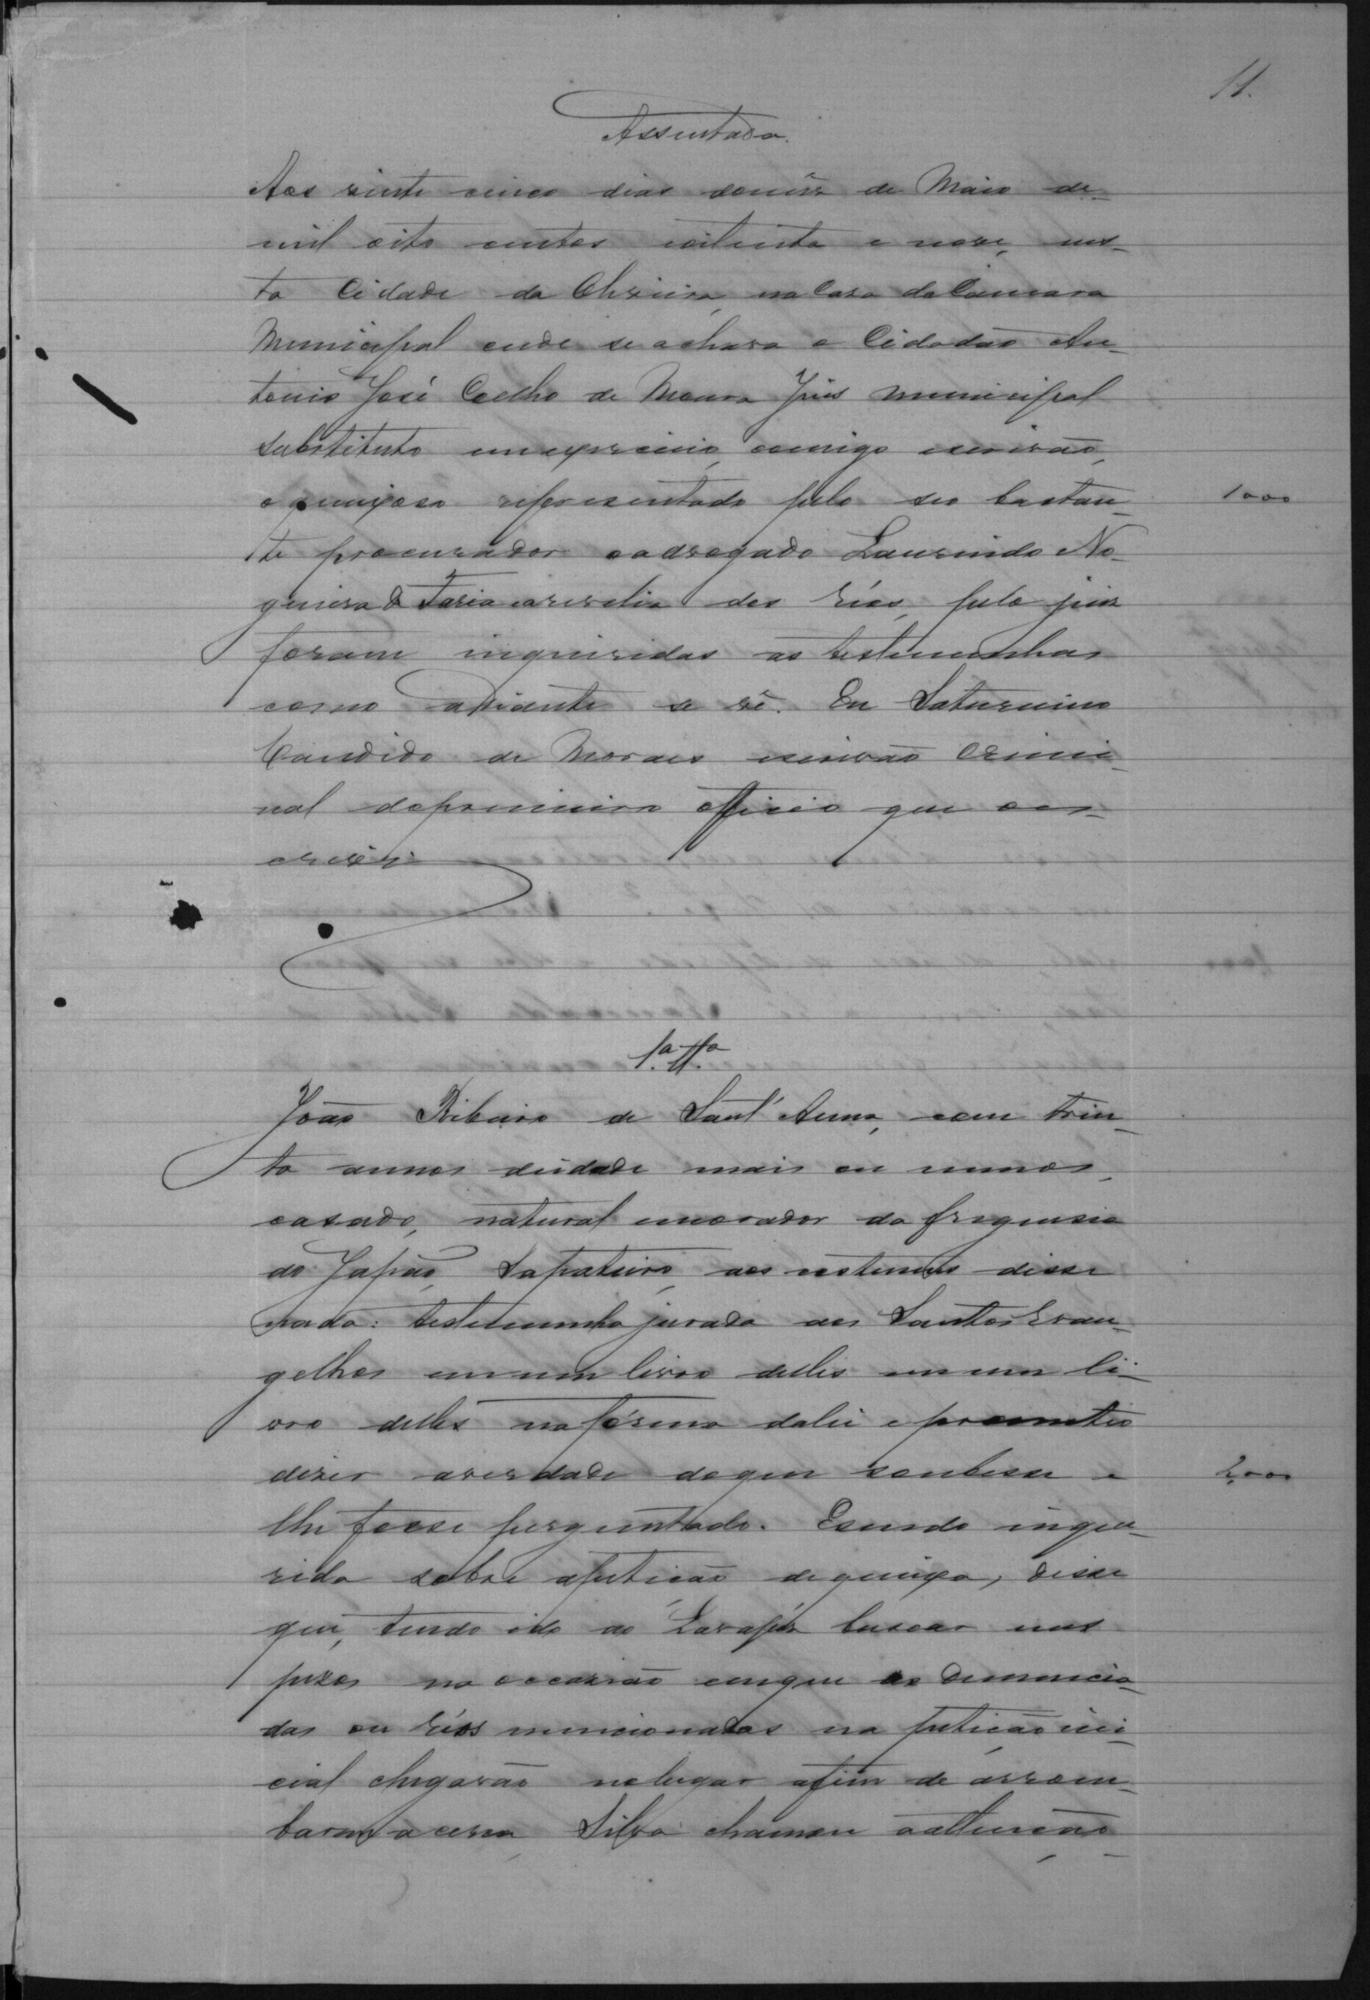 11.
Assentada.
Aos vinte cinco dias domêz de Maio de
mil oito centos oitenta e nove, nes-
ta Cidade da Oliveira, na Casa da Camara
Municipal onde se achava o Cidadão An-
tonio José Coelho de Moura Juis Municipal
substituto em exercicio, comigo escrivão,
o queixoso representado pelo seo bastan-
1000
te procurador o advogado Laurindo No-
gueira de Faria a revelia dos réos, pelo juiz
foram inqueridas as testemunhas
como adiante se vê. Eu Saturnino
Candido de Moraes escrivão Crimi-
nal do primeiro officio que o es-
crevi
1.ª Tt.ª
João Ribeiro de Sant'Anna, com trin-
ta annos deidade mais ou menos,
casado, natural e morador da freguesia
do Japão, Sapateiro, aos costumes disse
nada: testemunha jurada aos Santos Evan-
gelhos em um livro delles em um li-
vro delles na fórma dalei e prometteo
dizer averdade doque soubesse e
2,000
lhe fosse perguntado. Esendo inque-
rida sobre apetição dequeixa, disse
que, tendo ido ao buscar uns
na occazião emque os Denuncia-
dos ou réos mencionados na petição ini-
cial chegarão nolugar afim de arrom-
barem a cerca, Silva chamou aattenção